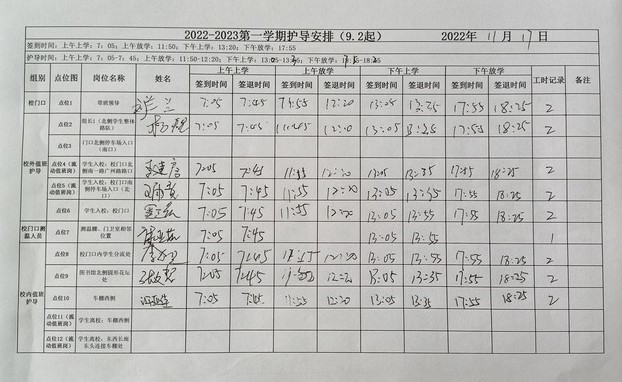 2022-2023第一学期护导安排（9.2起） 2022年 11月 17日
签到时间：上午上学：7：05；上午放学：11:50；下午上学：13;20；下午放学：17:55
护导时间：上午上学：7:05-7：45；上午放学：11:50-12:20；下午上学：
组别 点位图 岗位名称 姓名 上午上学 上午放学 下午上学 下午放学 工时记录 备注
签到时间 签退时间 签到时间 签退时间 签到时间 签退时间 签到时间 签退时间
校门口 点位1 带班领导 7:05 7:45 12:20 13:05 13:25 17:55 18:25 2
校外值班护导
点位2 组长1（北侧学生整体路队） 7:05 7:45 13:05 17:55 18:25 2
点位3 门口北侧停车场入口（南口）
点位4（流动值班岗） 学生入校：校门口北侧南一路广州路路口 7:05 7:45 11:55 12:20 13:05 13:35 17:55 18:25 2
点位5（流动值班岗） 学生入校：校门口南侧停车场入口（北口） 7:05 7:45 11:55 12:20 13:05 17:55 18:25 2
点位6 学生入校：校门口 7:05 7:45 11:55 12:20 13:05 13:55 17:55 18:25 2
校门口测温人员 点位7 测温棚、门卫室相邻位置 7:05 7:45 13:05 13:55 1
校内值班护导
点位8 校门口内学生分流处 7:05 7:45 12:20 13:05 13:55 17:55 18:25 2
点位9 图书馆北侧圆形花坛处 7:05 7:45 12:20 13:05 13:35 17:55 18:25 2
点位10 车棚西侧 7:05 11:55 12:20 13:05 13:35 17:55 18:25 2
点位11（流动值班岗） 学生离校：车棚西侧
点位12（流动值班岗） 学生离校：东西长廊东头连接车棚处